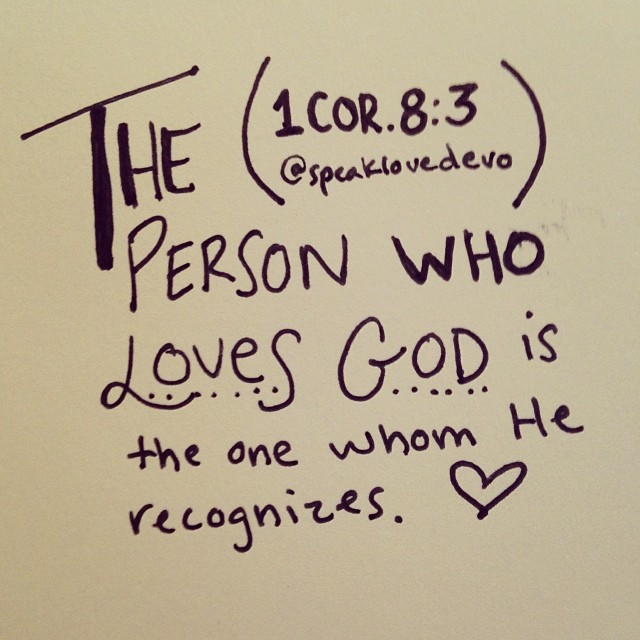 THE (1COR.8:3
@speaklovedevo)
PERSON WHO
Loves GOD is
the one whom He
recognizes.